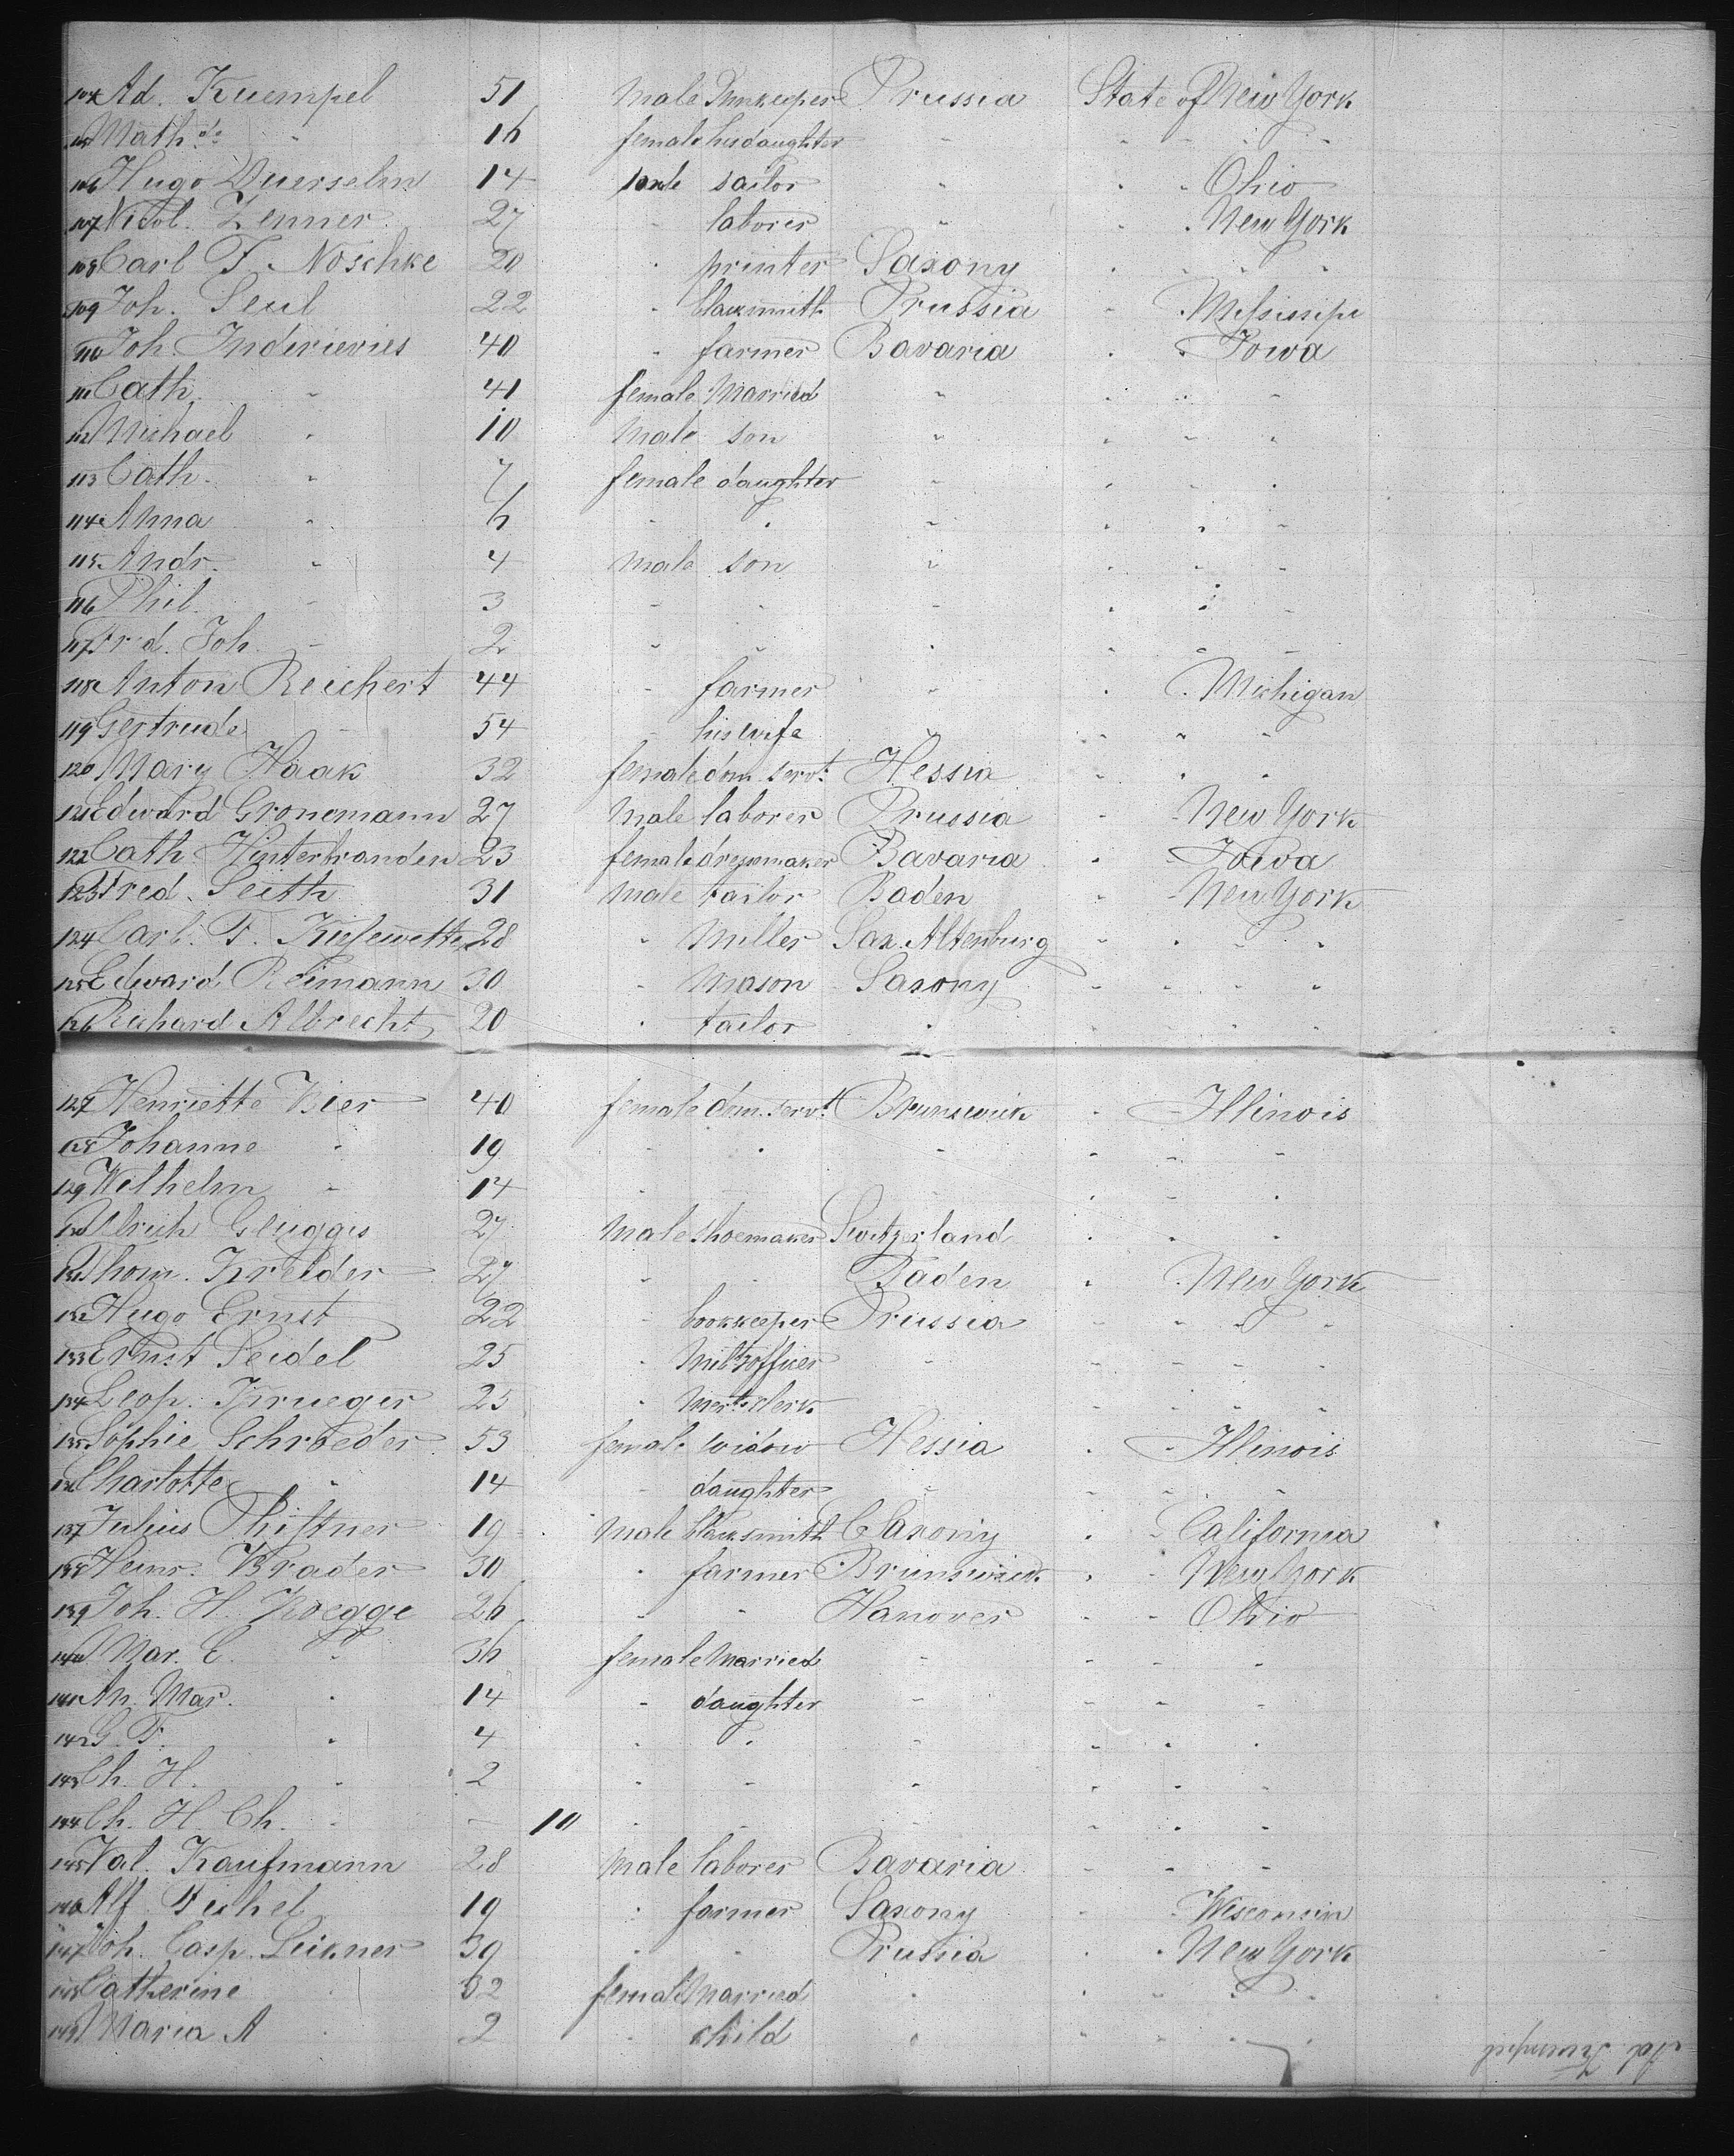 104 Ad. Kuempel 51 male Innkeeper Prussia State of New York
105 Math. do " 16 female his daughter " " " " "
106 Hugo Duerselen 14 male sailor " " " Ohio
107 Nicol. Zenner 27 " laborer " " New York
108 Carl F. Noschke 20 " printer Saxony " " " "
109 Joh. Seul 22 " blacksmith Prussia " " Missisippi
110 Joh. Inderievies 40 " farmer Bavaria " " Iowa
111 Cath. " 41 female Married " " " "
112 Michael " 10 male son " " " "
113 Cath. " 7 female daughter " " " "
114 Anna " 6 " " " " " "
115 Andr. " 4 male son " " " "
116 Phil. " 3 " " " " " "
117 Frd. Joh. " 2 " " " " " "
118 Anton Reichert 44 " farmer " " " Michigan
119 Gertrude " 54 " his wife " " " "
120 Mary Haak 32 female dom. servt. Hessia " " "
121 Edward Gronemann 27 male laborer Prussia " " New York
122 Cath. Hinterbranden 23 female dressmaker Bavaria " " Iowa
123 Fred. Seith 31 male tailor Baden " " New York
124 Carl. F. Kiesewetter 28 " miller Sax. Altenburg " " " "
125 Edward Reimann 30 " mason Saxony " " " "
126 Richard Albrecht 20 " tailor " " " " "
127 Henriette Bier 40 female dom. servt. Brunswick " " Illinois
128 Johanne " 19 " " " " " "
129 Wilhelm " 14 " " " "
130 Ulrich Gluggis 27 male shoemaker Switzerland " " "
131 Thom. Kreider 27 " " Baden " " New York
132 Hugo Ernst 22 " bookkeeper Prussia " " " "
133 Ernst Seidel 25 " milty officer " " " " "
134 Leop. Krueger 25 " mert. clerk " " " "
135 Sophie Schroeder 53 female widow Hessia " " Illinois
136 Charlotte " 14 " daughter " " " "
137 Julius Phistner 19 male blacksmith Saxony " " California
138 Heinr. Brader 30 " farmer Brunswick " " New York
139 Joh. H. Koegge 26 " " Hanover " " Ohio
140 Mar. E. " 36 female Married " " " "
141 An. Mar. " 14 " daughter " " " "
142 G. F. " 4 " " " " " "
143 Ch. H. " 2 " " " " " "
144 Ch. H. Ch. " - 10 " " " " " "
145 Val. Kaufmann 28 male laborer Bavaria " " "
146 Alf. Feichel 19 " farmer Saxony " " Wisconsin
147 Joh. Casp. Leikner 39 " " Prussia " " New York
148 Catherine " 32 female Married " " " " "
149 Maria A " 2 " child " " " " "
Ad. Kuempel